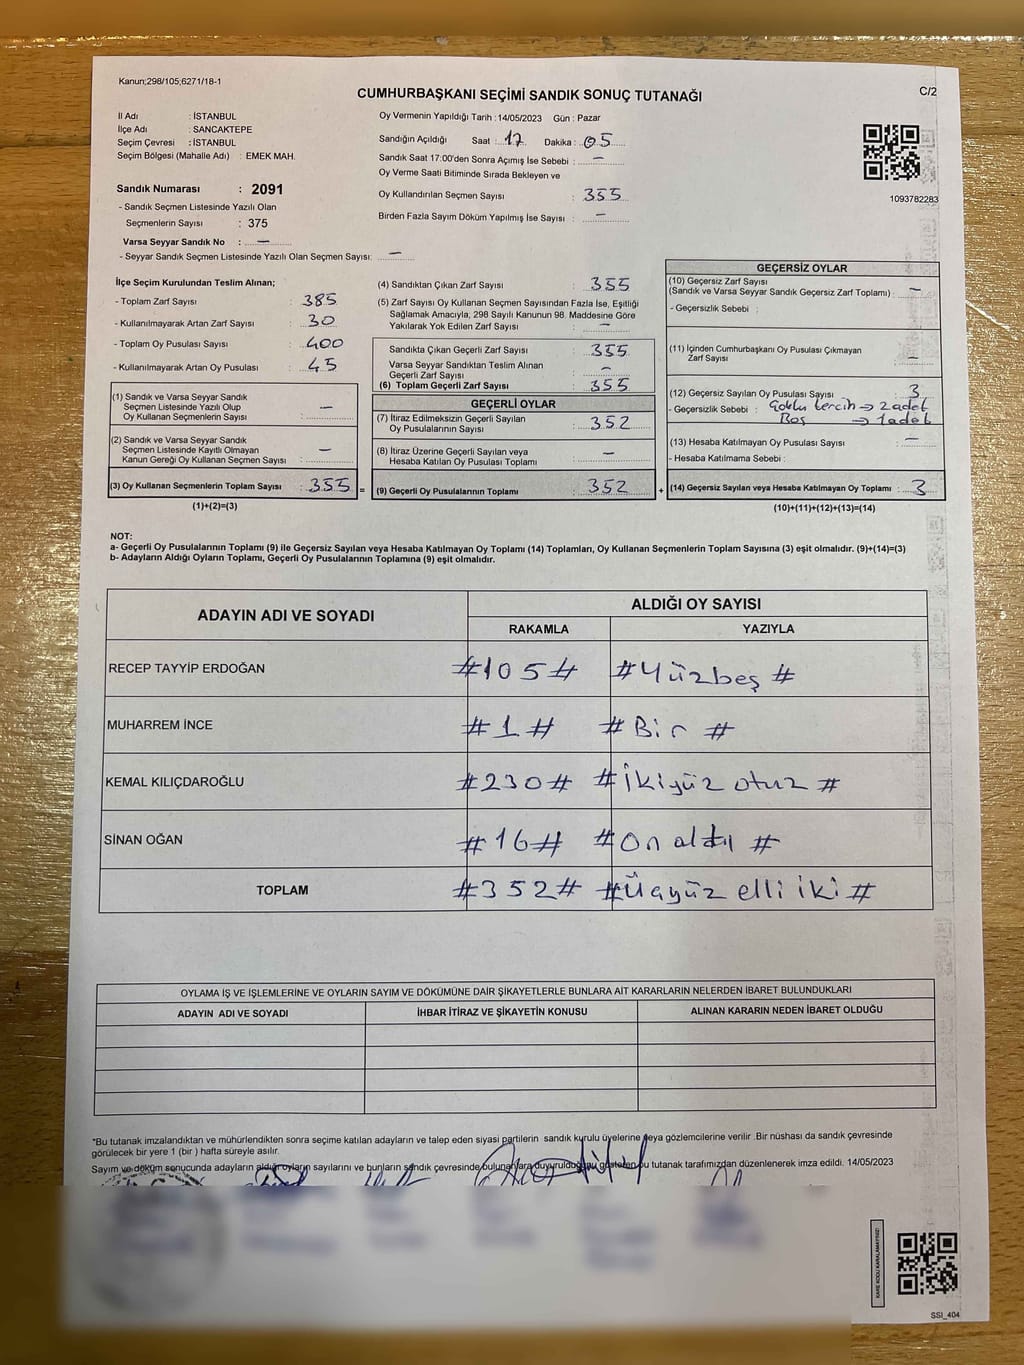 Kanun;298/105;6271/18-1
C/2
CUMHURBAŞKANI SEÇİMİ SANDIK SONUÇ TUTANAĞI
İl Adı : İSTANBUL
İlçe Adı : SANCAKTEPE
Seçim Çevresi : İSTANBUL
Seçim Bölgesi (Mahalle Adı) : EMEK MAH.
Sandık Numarası : 2091
- Sandık Seçmen Listesinde Yazılı Olan
Seçmenlerin Sayısı : 375
Varsa Seyyar Sandık No : —
- Seyyar Sandık Seçmen Listesinde Yazılı Olan Seçmen Sayısı: —
Oy Vermenin Yapıldığı Tarih :14/05/2023 Gün : Pazar
Sandığın Açıldığı Saat : 17 Dakika : 05
Sandık Saat 17:00'den Sonra Açımış İse Sebebi : —
Oy Verme Saati Bitiminde Sırada Bekleyen ve
Oy Kullandırılan Seçmen Sayısı : 355
Birden Fazla Sayım Döküm Yapılmış İse Sayısı : —
1093782283
İlçe Seçim Kurulundan Teslim Alınan;
- Toplam Zarf Sayısı : 385
- Kullanılmayarak Artan Zarf Sayısı : 30
- Toplam Oy Pusulası Sayısı : 400
- Kullanılmayarak Artan Oy Pusulası : 45
(1) Sandık ve Varsa Seyyar Sandık
Seçmen Listesinde Yazılı Olup
Oy Kullanan Seçmenlerin Sayısı : —
(2) Sandık ve Varsa Seyyar Sandık
Seçmen Listesinde Kayıtlı Olmayan
Kanun Gereği Oy Kullanan Seçmen Sayısı : —
(3) Oy Kullanan Seçmenlerin Toplam Sayısı : 355 =
(1)+(2)=(3)
(4) Sandıktan Çıkan Zarf Sayısı : 355
(5) Zarf Sayısı Oy Kullanan Seçmen Sayısından Fazla İse, Eşitliği
Sağlamak Amacıyla, 298 Sayılı Kanunun 98. Maddesine Göre
Yakılarak Yok Edilen Zarf Sayısı : —
Sandıkta Çıkan Geçerli Zarf Sayısı : 355
Varsa Seyyar Sandıktan Teslim Alınan
Geçerli Zarf Sayısı : —
(6) Toplam Geçerli Zarf Sayısı : 355
GEÇERLİ OYLAR
(7) İtiraz Edilmeksizin Geçerli Sayılan
Oy Pusulalarının Sayısı : 352
(8) İtiraz Üzerine Geçerli Sayılan veya
Hesaba Katılan Oy Pusulası Toplamı : —
(9) Geçerli Oy Pusulalarının Toplamı : 352 +
GEÇERSİZ OYLAR
(10) Geçersiz Zarf Sayısı
(Sandık ve Varsa Seyyar Sandık Geçersiz Zarf Toplamı) : —
- Geçersizlik Sebebi :
(11) İçinden Cumhurbaşkanı Oy Pusulası Çıkmayan
Zarf Sayısı : —
(12) Geçersiz Sayılan Oy Pusulası Sayısı : 3
- Geçersizlik Sebebi : Çoklu tercih → 2 adet
Boş → 1 adet
(13) Hesaba Katılmayan Oy Pusulası Sayısı : —
- Hesaba Katılmama Sebebi :
(14) Geçersiz Sayılan veya Hesaba Katılmayan Oy Toplamı : 3
(10)+(11)+(12)+(13)=(14)
NOT:
a- Geçerli Oy Pusulalarının Toplamı (9) ile Geçersiz Sayılan veya Hesaba Katılmayan Oy Toplamı (14) Toplamları, Oy Kullanan Seçmenlerin Toplam Sayısına (3) eşit olmalıdır. (9)+(14)=(3)
b- Adayların Aldığı Oyların Toplamı, Geçerli Oy Pusulalarının Toplamına (9) eşit olmalıdır.
ADAYIN ADI VE SOYADI
ALDIĞI OY SAYISI
RAKAMLA YAZIYLA
RECEP TAYYİP ERDOĞAN #105# #Yüzbeş #
MUHARREM İNCE #1# #Bir #
KEMAL KILIÇDAROĞLU #230# #İkiyüz otuz #
SİNAN OĞAN #16# #On altı #
TOPLAM #352# #Üçyüz elli iki #
OYLAMA İŞ VE İŞLEMLERİNE VE OYLARIN SAYIM VE DÖKÜMÜNE DAİR ŞİKAYETLERLE BUNLARA AİT KARARLARIN NELERDEN İBARET BULUNDUKLARI
ADAYIN ADI VE SOYADI İHBAR İTİRAZ VE ŞİKAYETİN KONUSU ALINAN KARARIN NEDEN İBARET OLDUĞU
*Bu tutanak imzalandıktan ve mühürlendikten sonra seçime katılan adayların ve talep eden siyasi partilerin sandık kurulu üyelerine veya gözlemcilerine verilir .Bir nüshası da sandık çevresinde
görülecek bir yere 1 (bir ) hafta süreyle asılır.
Sayım ve döküm sonucunda adayların aldığı oyların sayılarını ve bunların sandık çevresinde bulunanlara duyurulduğunu gösteren bu tutanak tarafımızdan düzenlenerek imza edildi. 14/05/2023
KARE KODU KARALAMAYINIZ!
SSI_404